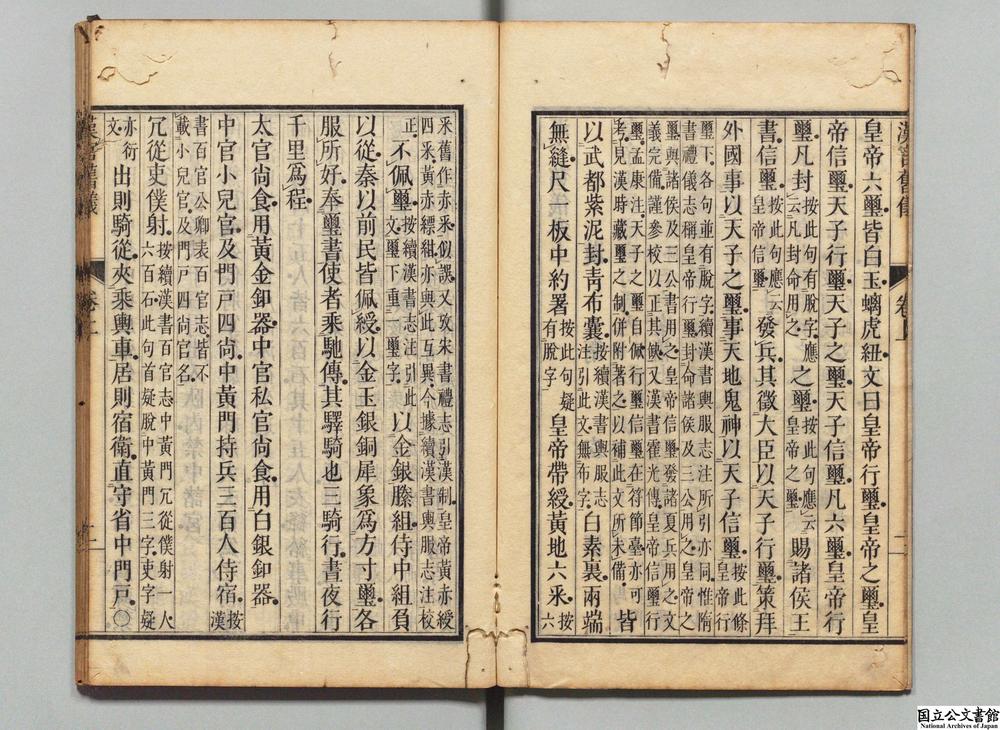 漢官舊儀 卷上 二
皇帝六璽皆白玉螭虎紐文曰皇帝行璽皇帝之璽皇
帝信璽天子行璽天子之璽天子信璽凡六璽皇帝行
璽凡封按此句有脫字應云凡封命用之之璽按此句應云皇帝之璽賜諸侯王
書信璽按此句應云皇帝信璽發兵其徵大臣以天子行璽策拜
外國事以天子之璽事天地鬼神以天子信璽按此條皇帝行
璽下各句並有脫字續漢書輿服志注所引亦同惟隋
書禮儀志稱皇帝行璽封命諸侯及三公用之皇帝之
璽與諸侯及三公書用之皇帝信璽發諸夏兵用之文
義完備謹參校以正其闕又漢書霍光傳皇帝信璽行
璽孟康注天子之璽自佩行璽信璽在符節臺亦可
考見漢時藏璽之制併附著之以補此文所未備皆
以武都紫泥封青布囊按續漢書輿服志注引此文無布字白素裏兩端
無縫尺一板中約署按此句疑有脫字皇帝帶綬黃地六采按六
采舊作赤采似誤又攷宋書禮志引漢制皇帝黃赤綬
四采黃赤縹紺亦與此互異今據續漢書輿服志注校
正不佩璽按續漢書志注引此文璽下重璽字以金銀縢組侍中組負
以從秦以前民皆佩綬以金玉銀銅犀象爲方寸璽各
服所好奉璽書使者乘馳傳其驛騎也三騎行晝夜行
千里爲程
太官尚食用黃金釦器中官私官尚食用白銀釦器
中官小兒官及門戶四尚中黃門持兵三百人侍宿按漢
書百官公卿表百官志皆不載小兒官及門戶四尚官名
冗從吏僕射按續漢書百官志中黃門冗從僕射一人六百石此句首疑脫中黃門三字吏字疑
亦衍文出則騎從夾乘輿車居則宿衛直守省中門戶○
漢官舊儀 卷上 二
国立公文書館
National Archives of Japan